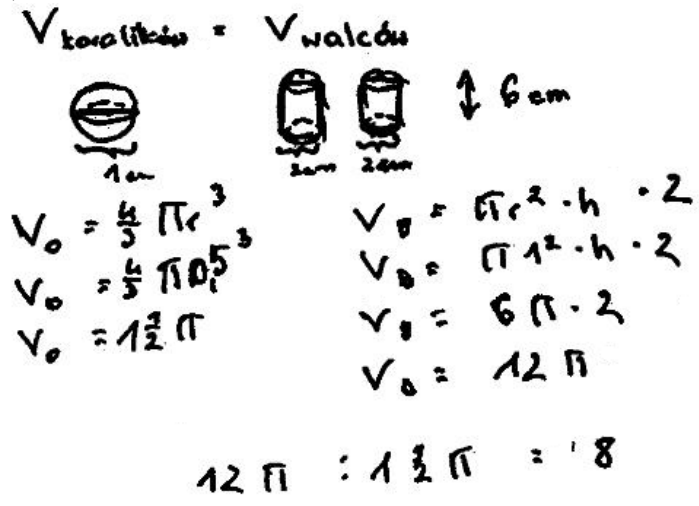 V koralików = V walców
6 cm
1 cm 2cm 2cm
V₀ = 4/3 πr³
V₀ = 4/3 π0,5³
V₀ = 1 1/2 π
V = πr² · h · 2
V = π1² · h · 2
V = 6π · 2
V = 12π
12π : 1 1/2 π = 8